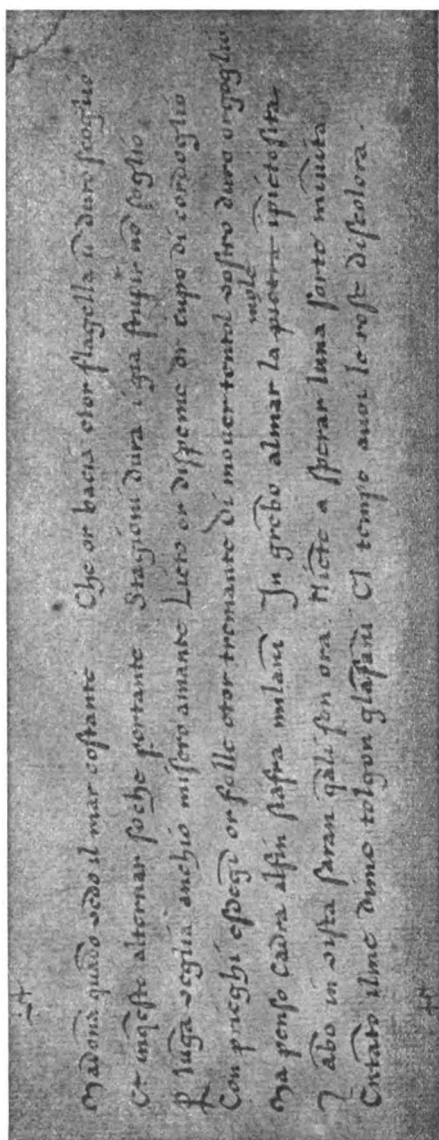 Madona quãdo vedo il mar costante Che or bacia etor flagella ũ duro scoglio
Et inqeste alternar soche portante Stagioni dura i già stupir nõ soglio
P luga veglia anchio misero amante Lieto or dispeme or cupo di cordoglio
Con prieghi or folle etor tremante di mover tentol vostro duro orgoglio
mole
Ma penso Cadra alfin stafra milani In grēbo almar la pietra ipietosita
abo in vista saran qãli son ora. Niete a sperar luna sorte minvita
tolgon El tempo avoi le rose discolora.